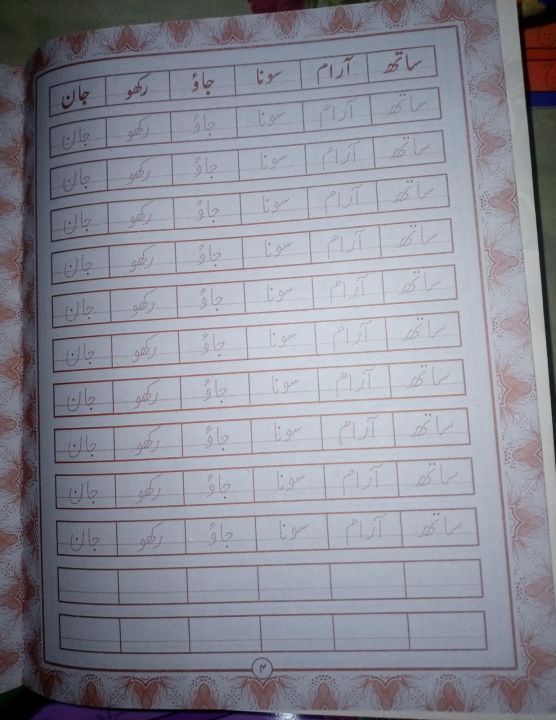 ساتھ آرام سونا جاؤ رکھو جان
ساتھ آرام سونا جاؤ رکھو جان
ساتھ آرام سونا جاؤ رکھو جان
ساتھ آرام سونا جاؤ رکھو جان
ساتھ آرام سونا جاؤ رکھو جان
ساتھ آرام سونا جاؤ رکھو جان
ساتھ آرام سونا جاؤ رکھو جان
ساتھ آرام سونا جاؤ رکھو جان
ساتھ آرام سونا جاؤ رکھو جان
ساتھ آرام سونا جاؤ رکھو جان
ساتھ آرام سونا جاؤ رکھو جان